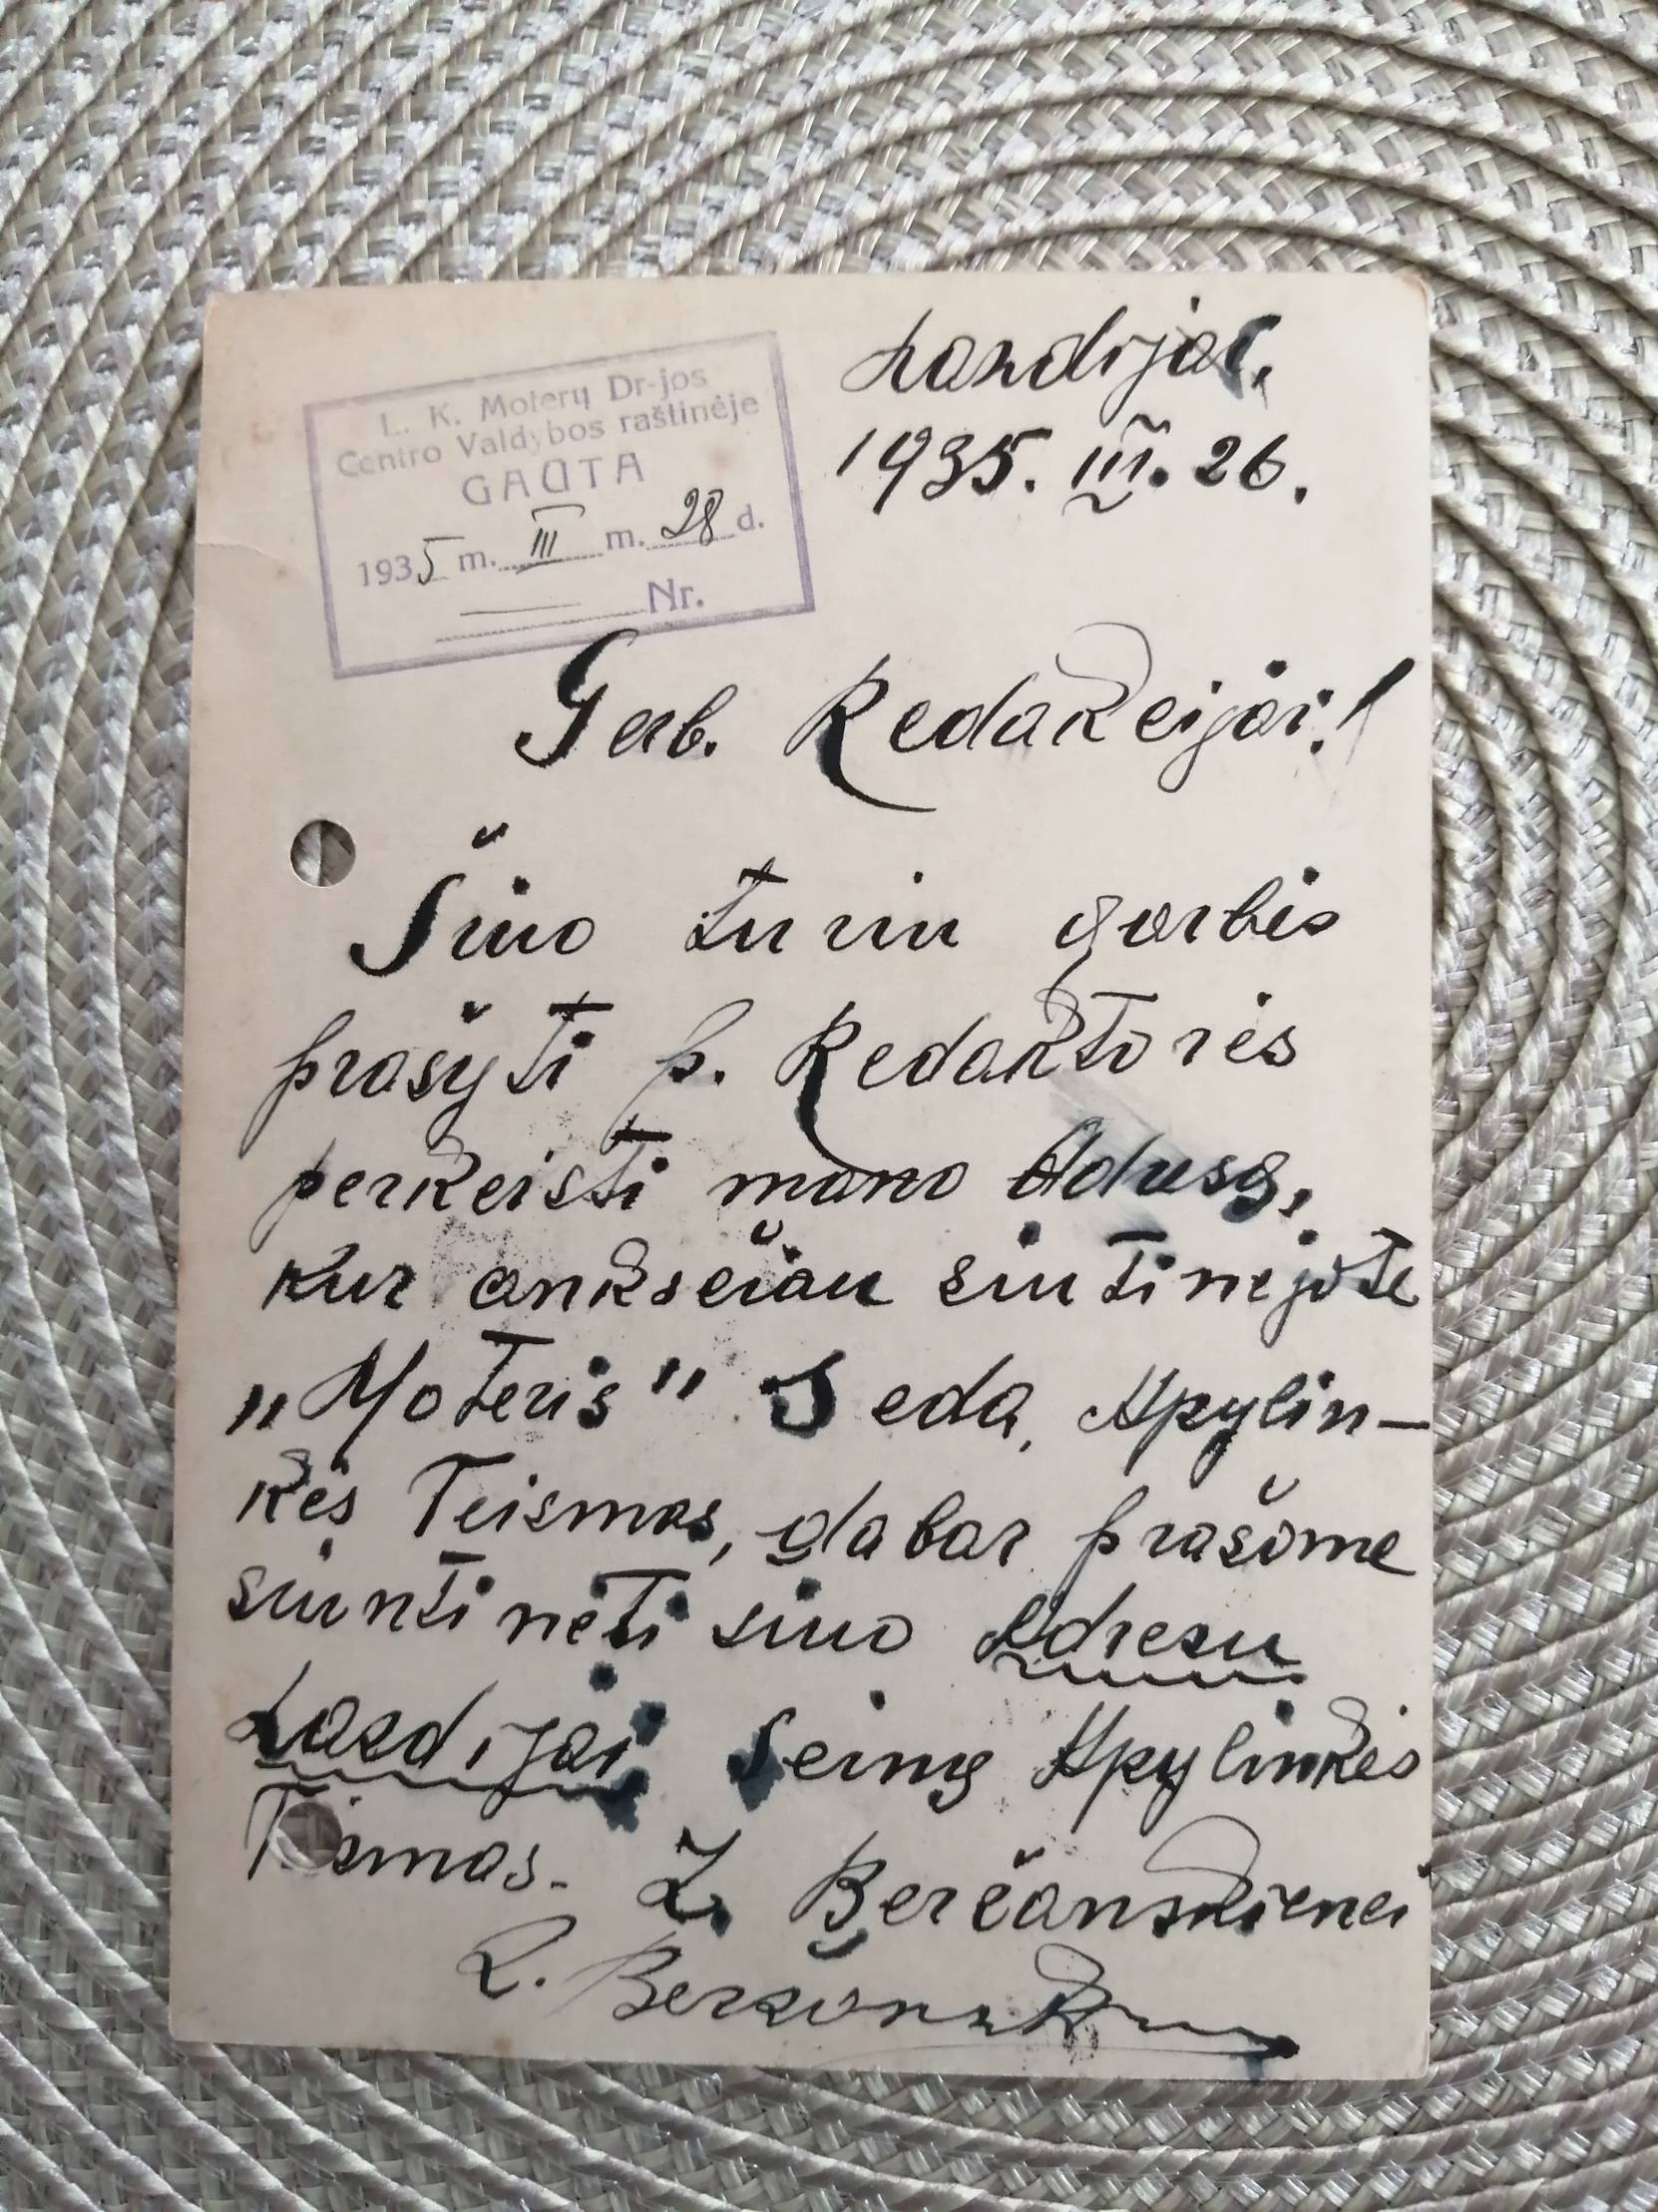 L. K. Moterų Dr-jos
Centro Valdybos raštinėje
GAUTA
1935 m. III m. 28 d.
Nr.
Lazdijai,
1935. III. 26.
Gerb. Redakcijai!
Šiuo turiu garbės
prašyti p. Redaktorės
perkeisti mano Adresą,
kur anksčiau siuntinėjote
„Moteris" Seda, Apylin-
kės Teismas, dabar prašome
siuntinėti šiuo Adresu
Lazdijai Seinų Apylinkės
Teismas. Z. Berčanskienei